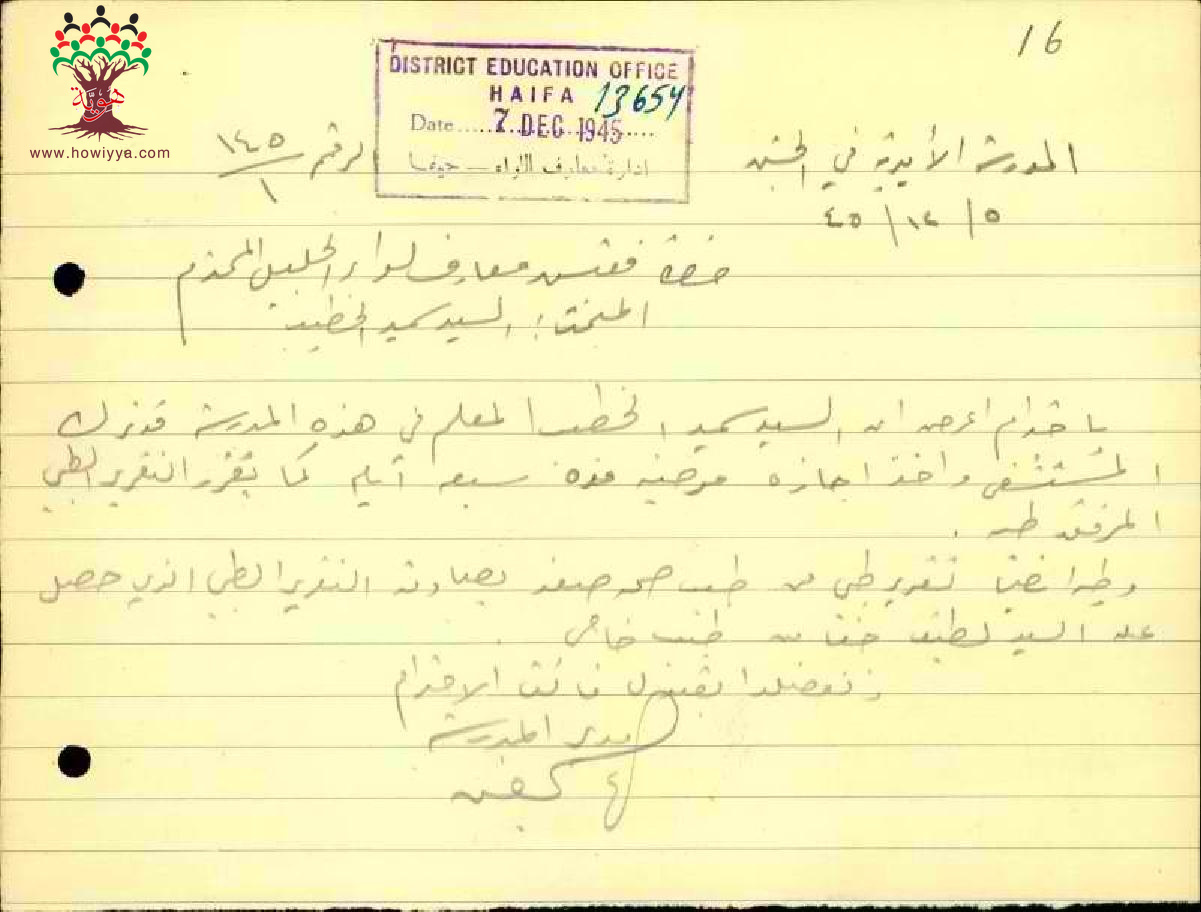 16
هوية
www.howiyya.com
DISTRICT EDUCATION OFFICE
HAIFA 13654
Date 7 DEC 1945
ادارة معارف اللواء — حيفا
الرقم ١٤٥/١
المدرسة الأميرية في
٥ / ١٢ / ٤٥
حضرة مفتش معارف لواء الجليل المحترم
السيد سميد الخطيب
باحترام اعرض ان السيد سميد الخطيب المعلم في هذه المدرسة قد ترك
المستشفى واخذ اجازة مرضية مدة سبعة أيام كما يقرر التقرير الطبي
المرفق طيه .
وطيه ايضا تقرير طبي من طبيب صحة صفد بمصادقة التقرير الطبي الذي حصل
عليه السيد لطيف من طبيب خاص .
وتفضلوا بقبول فائق الاحترام
مدير المدرسة